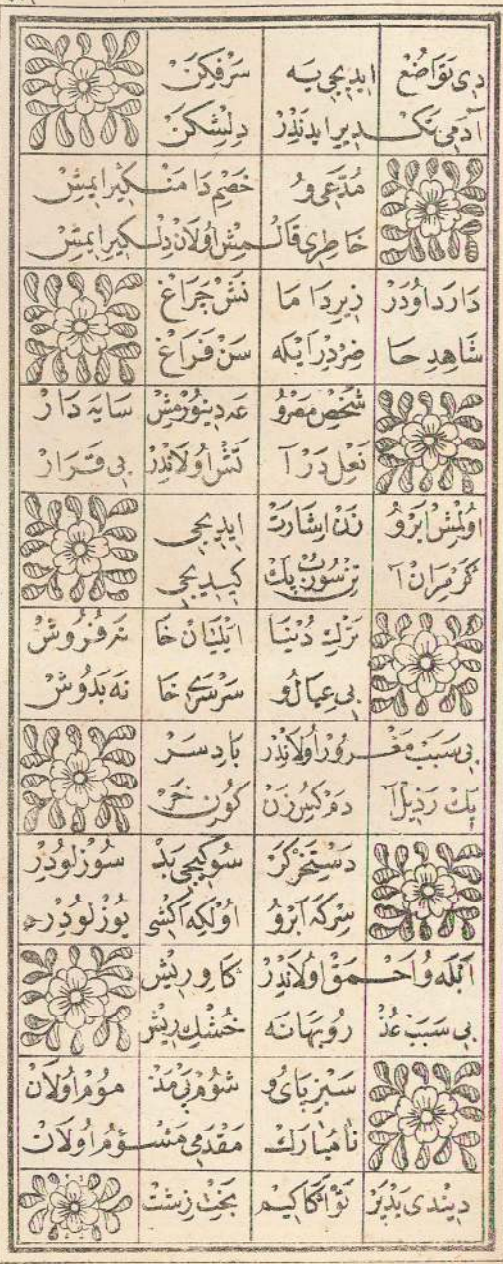 دِى تَوَاضُعْ ایدیجى یه سَرْفِكَنْ
آدمى تكدير ایدندر دلشكن
مدعى و خصم دامنكير ایمش
خاطرى قالمش اولان دلكير ایمش
دارداودر زیردا ما نش چراغ
شاهد حا ضردر ایكه سن فراغ
شخص معرو عه دینورمش سایه دار
نعل درآ تش اولاندر بى قرار
اولمش ابرو زن اشارت ایدیجى
كرمران آ تز سورب پك كیدیجى
ترك دنیا ایلیان خا نه فروش
بى عیال و سرسرى خا نه بدوش
بى سبب مغرور اولاندر باد سر
پك رذیل آ دمكش زن كون خر
دستخركر سوكیجى بد سوزلودر
سركه ابرو اولكه اكشى یوزلودر
ابله و احمق اولاندر كاوریش
بى سبب عذ روبهانه خشك ریش
سبزپاى و شوم بى مذ موم اولان
نامبارك مقدمى مشؤم اولان
دیندى بدبر تو اكا كیم بخت زشت